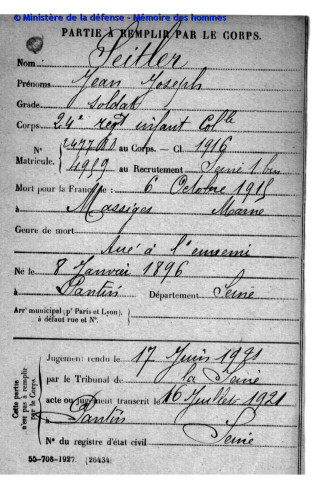 © Ministère de la défense - Mémoire des hommes
PARTIE À REMPLIR PAR LE CORPS.
Nom Seitler
Prénoms Jean Joseph
Grade soldat
Corps 24e regt infant Colle
N° 14778 au Corps. — Cl. 1916
Matricule. 4959 au Recrutement Seine 1 bau
Mort pour la France le : 6 Octobre 1915
à Massiges Marne
Genre de mort
tué à l'ennemi
Né le 8 Janvier 1896
à Pantin Département Seine
Arrt municipal (pr Paris et Lyon),
à défaut rue et N°.
Cette partie
n'est pas à remplir
par le Corps.
Jugement rendu le 17 Juin 1921
par le Tribunal de la Seine
acte ou jugement transcrit le 16 Juillet 1921
à Pantin
N° du registre d'état civil Seine
55-708-1927. [20434]